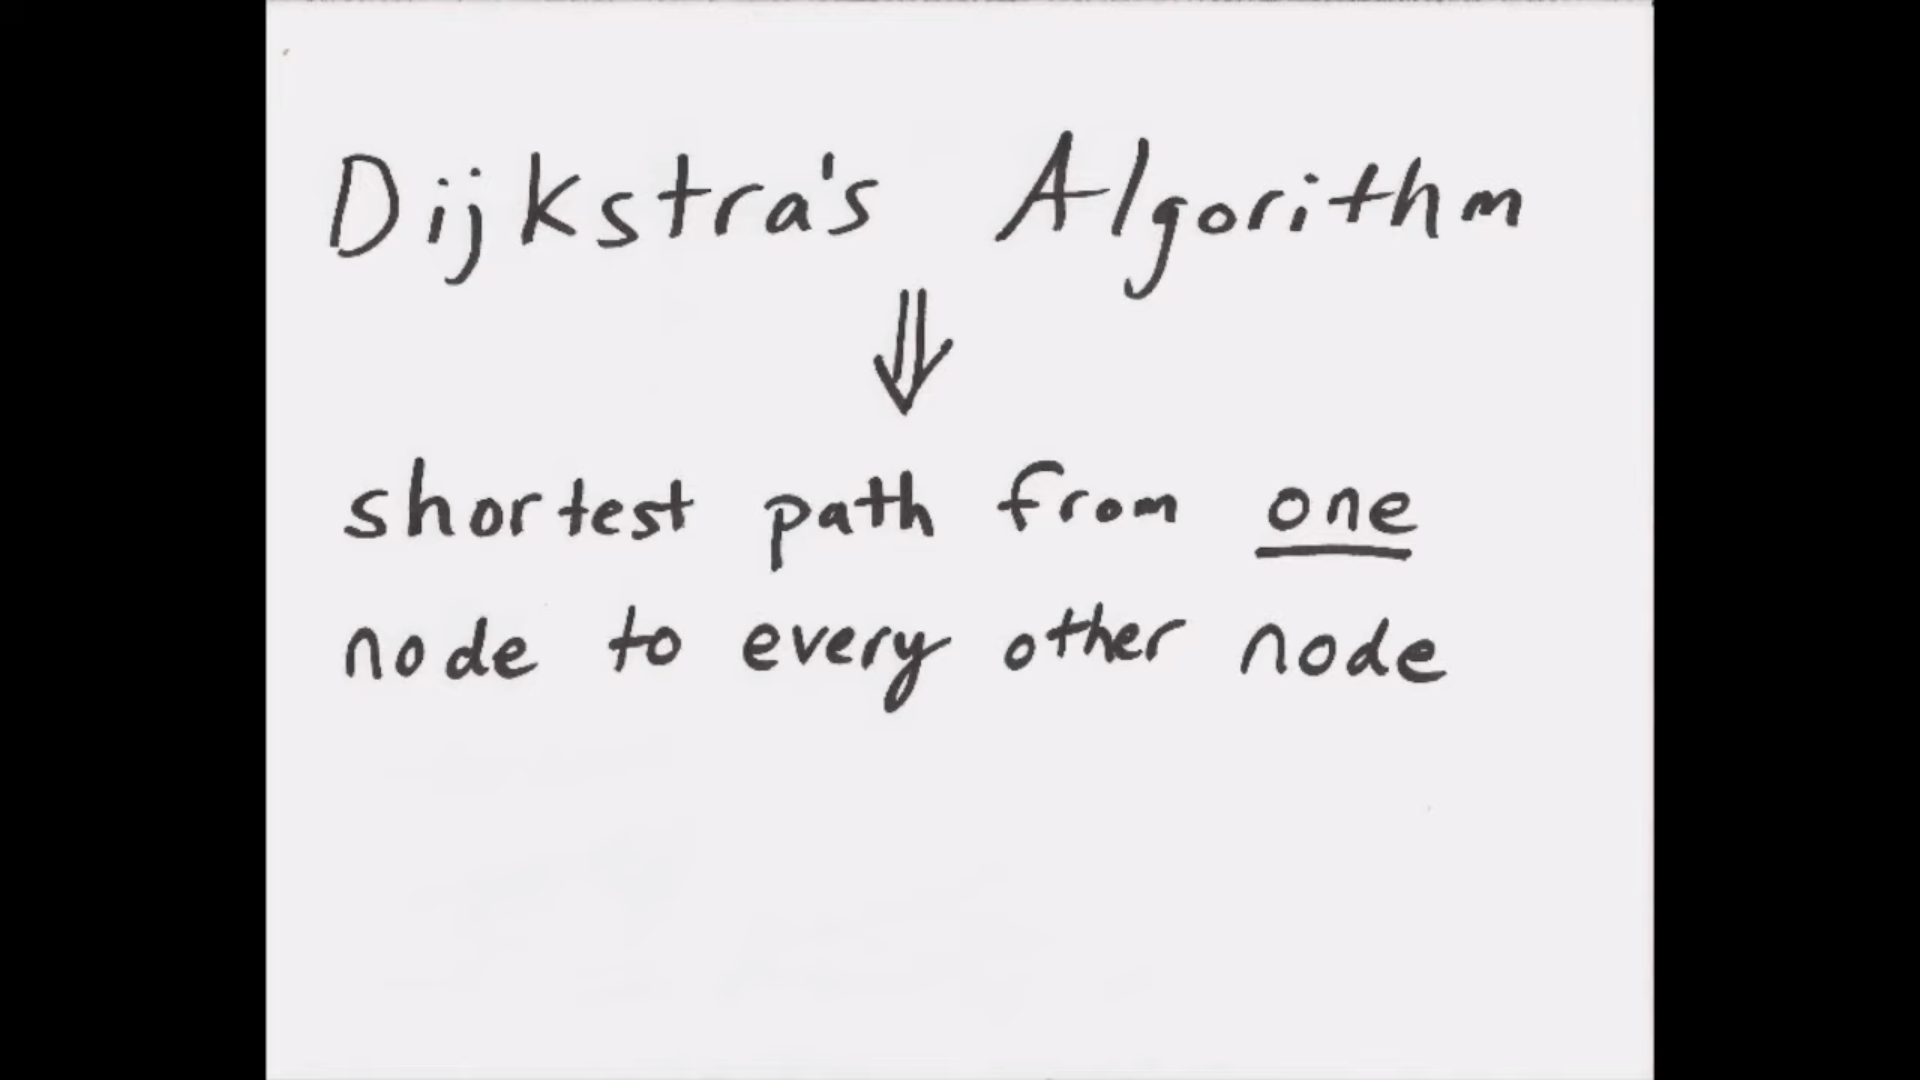 Dijkstra's Algorithm
⇓
shortest path from one
node to every other node